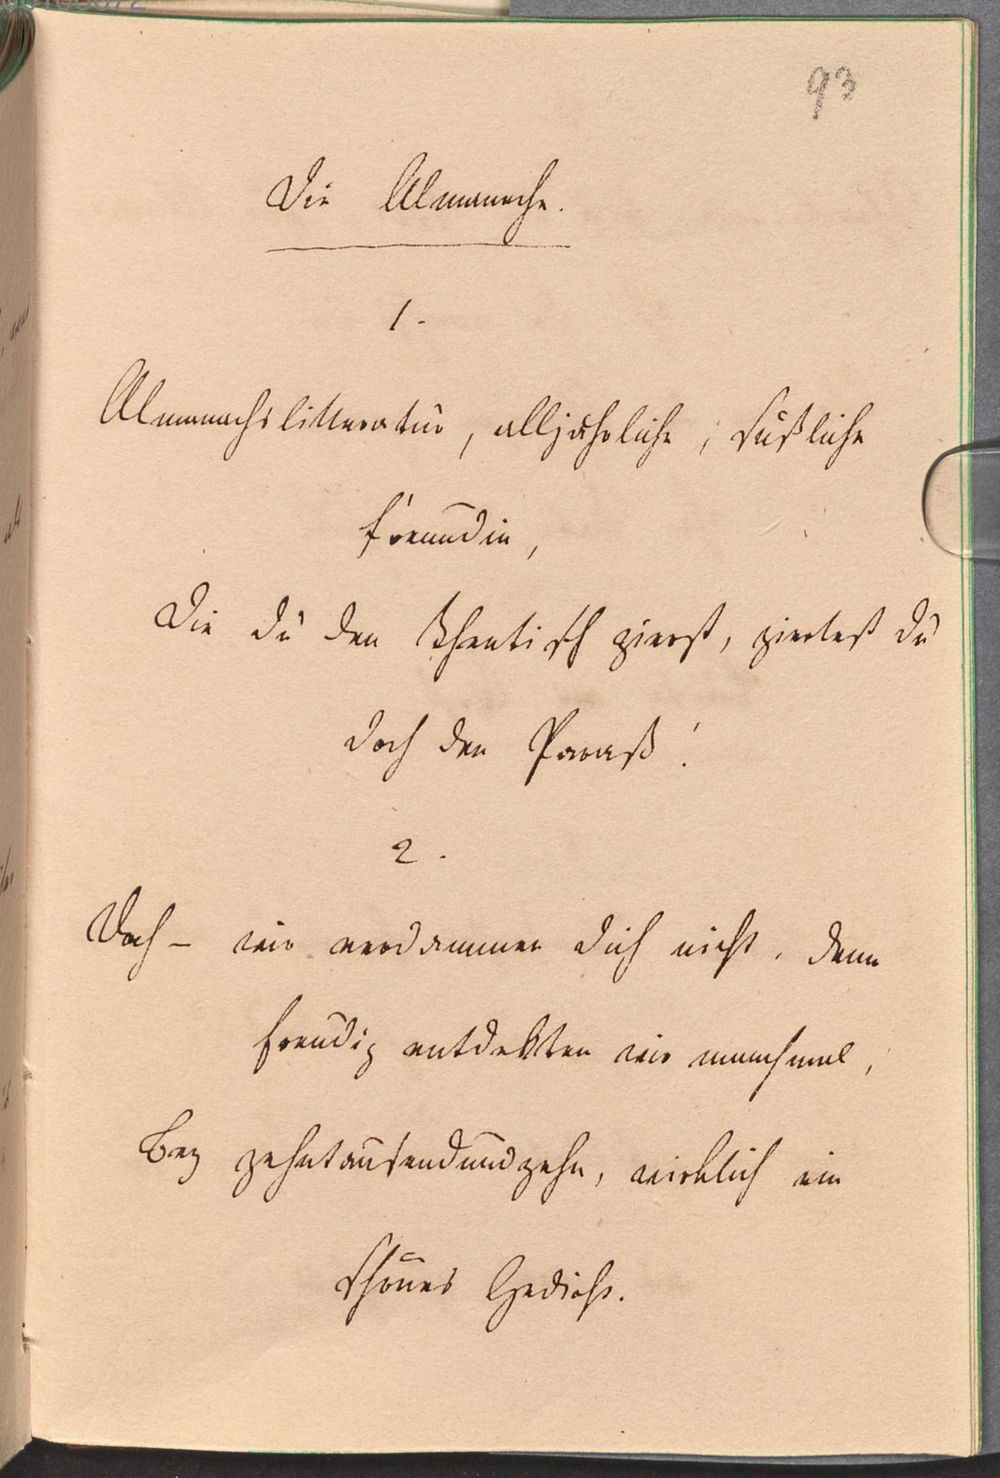 93
Die Almanache.
1.
Almanachslitteratur, alljährliche, süßliche
Freundin,
Die du den Theetisch zierst, ziertest du
doch den Parnaß!
2.
Doch – wir verdammen dich nicht, denn
freudig entdekten wir manchmal,
Bey zehntausendundzehn, wirklich ein
schönes Gedicht.